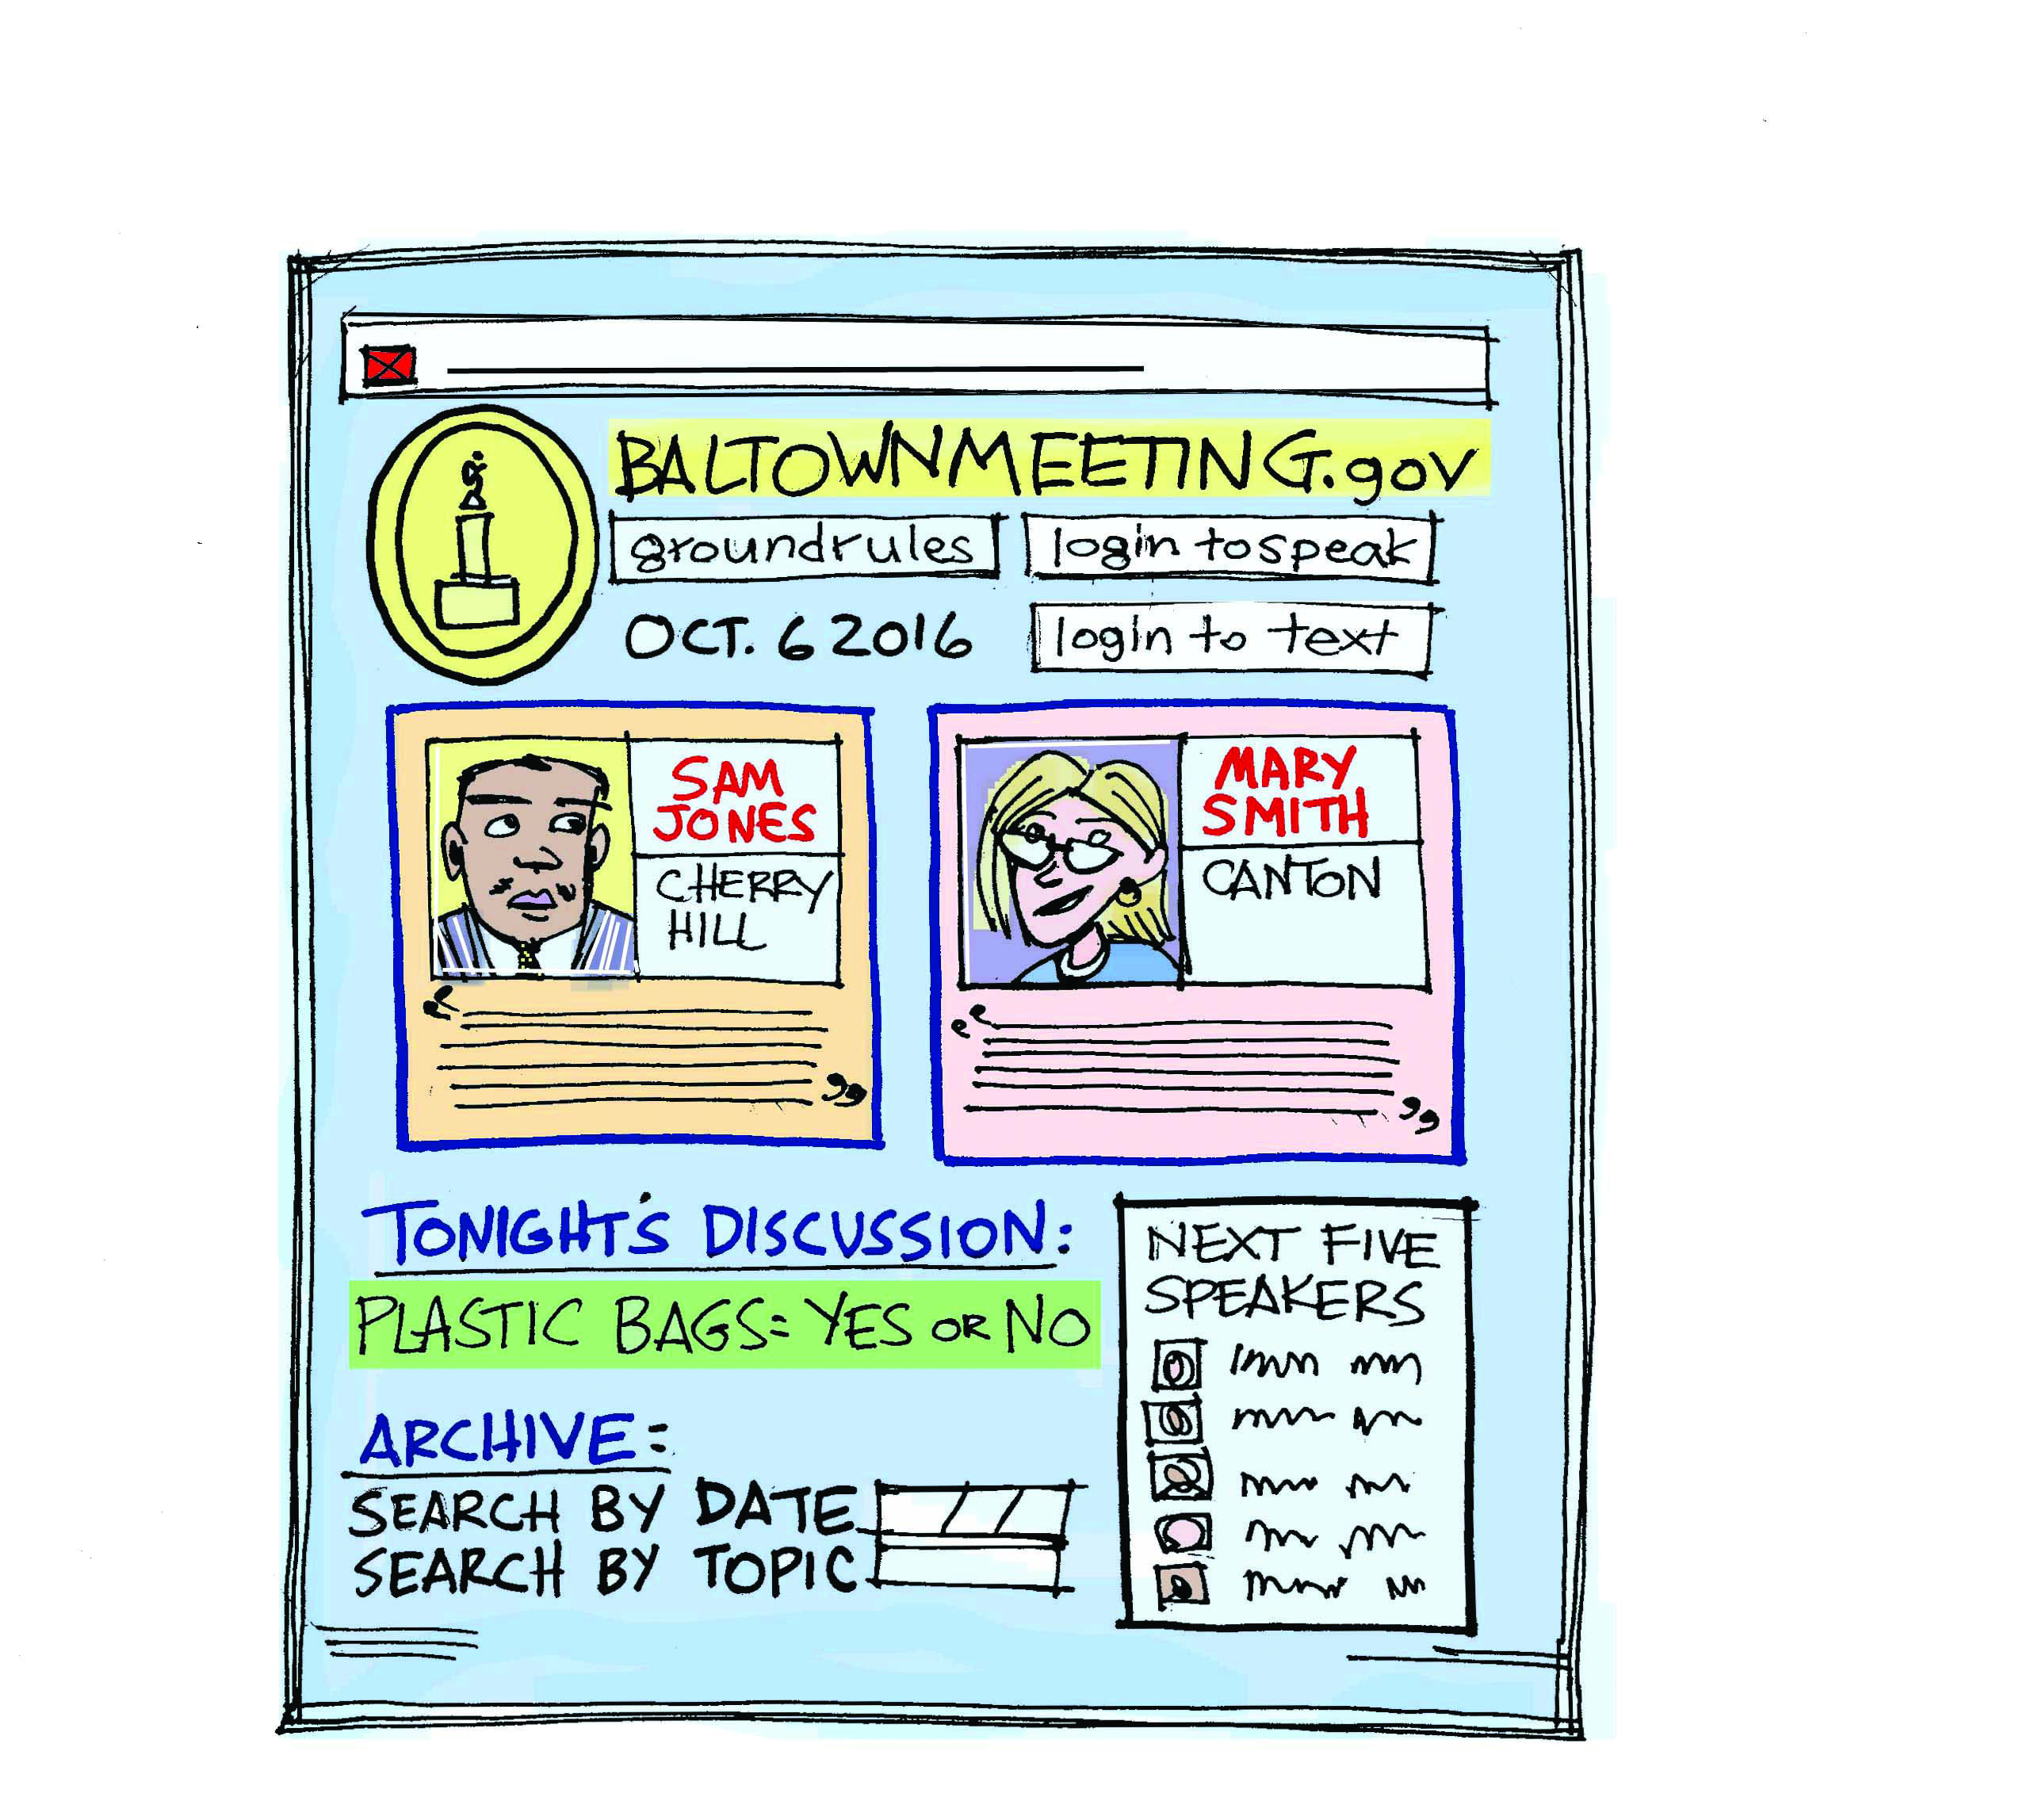 BALTOWNMEETING.gov
groundrules
login to speak
OCT. 6 2016
login to text
SAM
JONES
CHERRY
HILL
MARY
SMITH
CANTON
TONIGHT'S DISCUSSION:
PLASTIC BAGS= YES OR NO
ARCHIVE:
SEARCH BY DATE
SEARCH BY TOPIC
NEXT FIVE
SPEAKERS